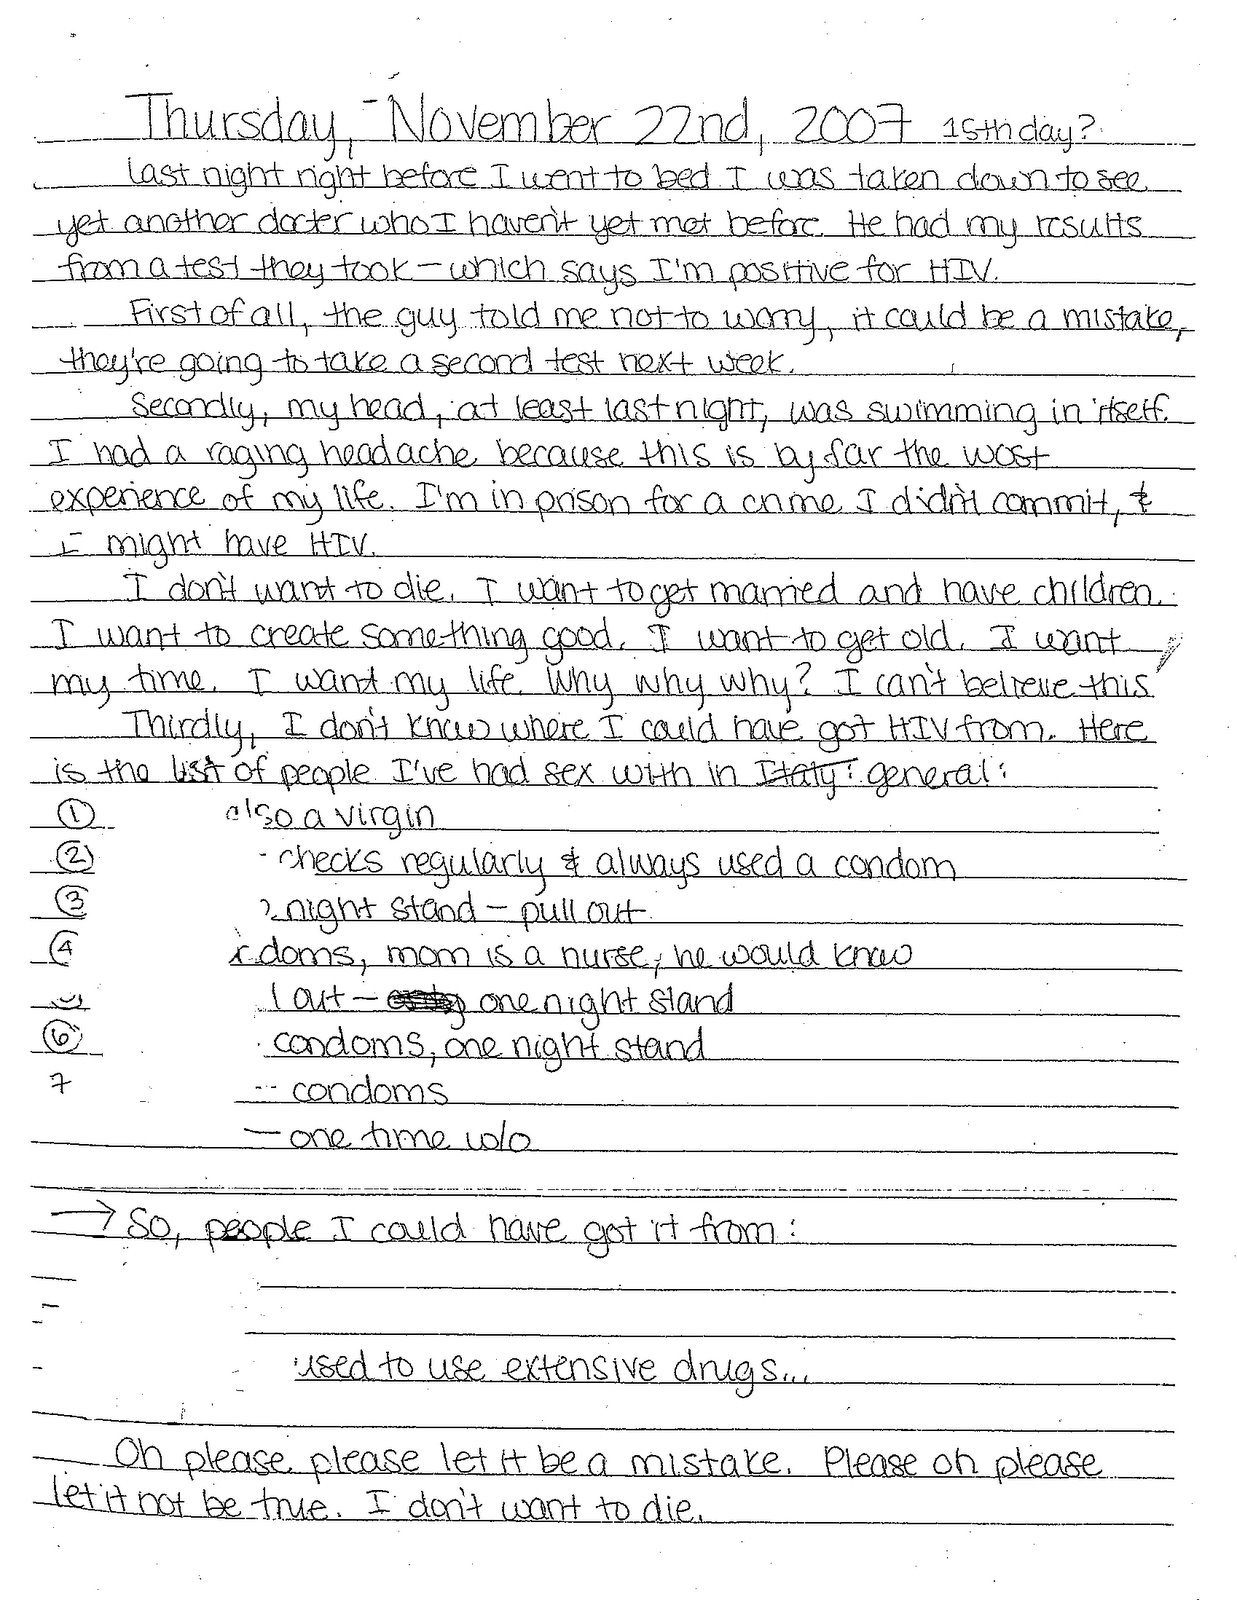 Thursday, November 22nd, 2007 15th day?
Last night right before I went to bed I was taken down to see
yet another docter who I haven't yet met before. He had my results
from a test they took - which says I'm positive for HIV.
First of all, the guy told me not to worry, it could be a mistake,
they're going to take a second test next week.
Secondly, my head, at least last night, was swimming in itself.
I had a raging headache because this is by far the wost
experience of my life. I'm in prison for a crime I didn't commit, &
I might have HIV.
I don't want to die. I want to get married and have children.
I want to create something good. I want to get old. I want
my time. I want my life. Why why why? I can't believe this
Thirdly, I don't know where I could have got HIV from. Here
is the list of people I've had sex with in Italy: general:
① also a virgin
② checks regularly & always used a condom
③ night stand - pull out
④ doms, mom is a nurse, he would know
out - one night stand
⑥ condoms, one night stand
7 - condoms
- one time w/o
→ So, people I could have got it from:
used to use extensive drugs...
Oh please please let it be a mistake. Please oh please
let it not be true. I don't want to die.